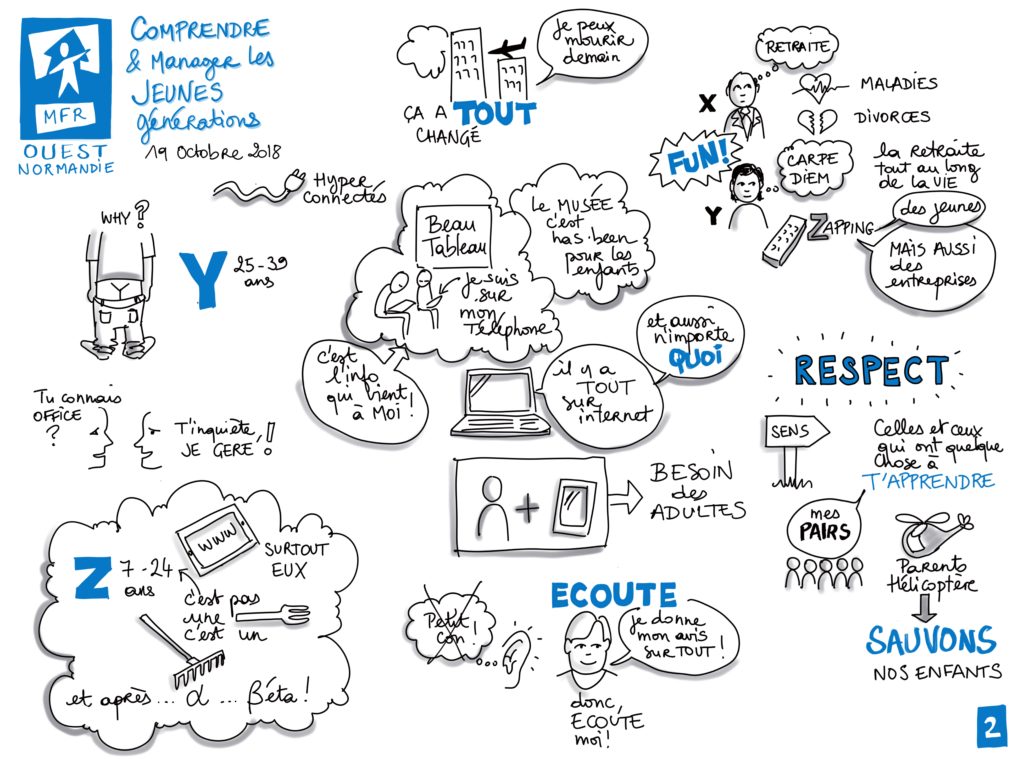 MFR
OUEST
NORMANDIE
COMPRENDRE
& Manager les
JEUNES
générations
19 Octobre 2018
ÇA A TOUT
CHANGÉ
je peux
mourir
demain
RETRAITE
X
MALADIES
DIVORCES
FUN!
Y
CARPE
DIEM
la Retraite
tout au long
de la VIE
ZAPPING
des jeunes
MAIS AUSSI
des
entreprises
Hyper
connectés
WHY?
Y
Y 25-39
ans
Beau
Tableau
je suis
sur
mon
Téléphone
Le MUSÉE
c'est
has-been
pour les
enfants
c'est
l'info
qui vient
à Moi!
il y a
TOUT
sur
internet
et aussi
n'importe
QUOI
Tu connais
OFFICE
?
T'inquiète,
JE GERE!
+
BESOIN
des
ADULTES
RESPECT
SENS
Celles et ceux
qui ont quelque
chose à
T'APPRENDRE
mes
PAIRS
Parents
Hélicoptère
SAUVONS
NOS ENFANTS
Z 7-24
ans
WWW
SURTOUT
EUX
c'est pas
une
c'est un
et après... α ... Béta!
Petit
con!
ECOUTE
je donne
mon avis
SUR TOUT!
donc,
ECOUTE
moi!
2